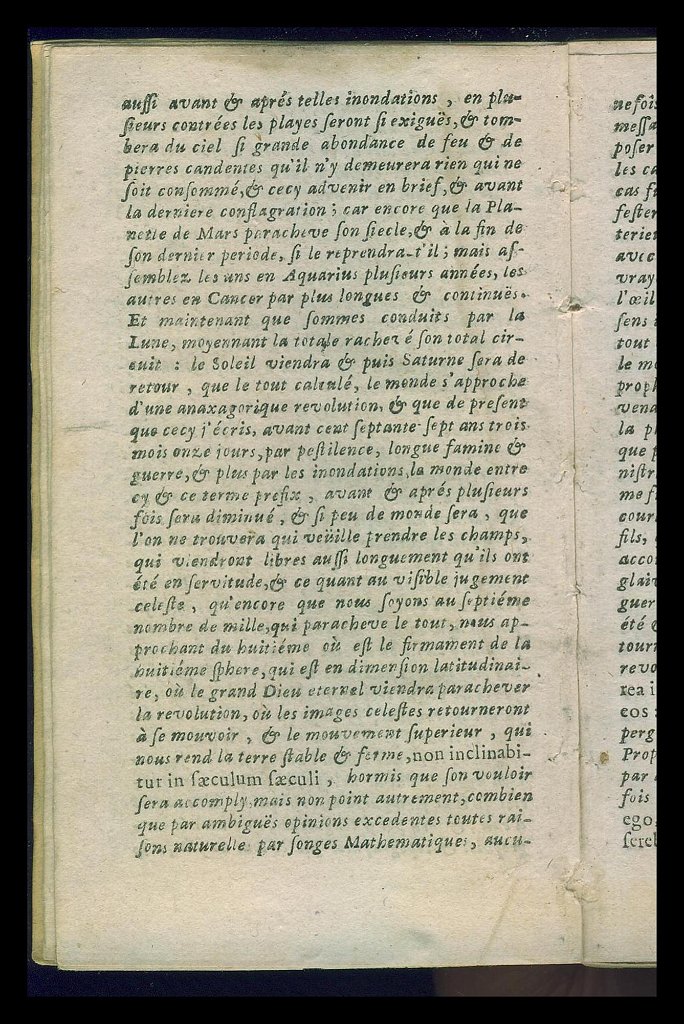 aussi avant & aprés telles inondations, en plu-
sieurs contrées les playes seront si exiguës, & tom-
bera du ciel si grande abondance de feu & de
pierres candentes qu'il n'y demeurera rien qui ne
soit consommé, & cecy advenir en brief, & avant
la derniere conflagration; car encore que la Pla-
nette de Mars paracheve son siecle, & à la fin de
son dernier periode, si le reprendra-t'il; mais as-
semblez les uns en Aquarius plusieurs années, les
autres en Cancer par plus longues & continuës.
Et maintenant que sommes conduits par la
Lune, moyennant la totale rachevé son total cir-
cuit : le Soleil viendra & puis Saturne sera de
retour, que le tout calculé, le monde s'approche
d'une anaxagorique revolution, & que de present
que cecy j'écris, avant cent septante-sept ans trois
mois onze jours, par pestilence, longue famine &
guerre, & plus par les inondations, le monde entre
cy & ce terme prefix, avant & aprés plusieurs
fois sera diminué, & si peu de monde sera, que
l'on ne trouvera qui veüille prendre les champs,
qui viendront libres aussi longuement qu'ils ont
été en servitude, & ce quant au visible jugement
celeste, qu'encore que nous soyons au septiéme
nombre de mille, qui paracheve le tout, nous ap-
prochant du huitiéme où est le firmament de la
huitiéme sphere, qui est en dimension latitudinai-
re, où le grand Dieu eternel viendra parachever
la revolution, où les images celestes retourneront
à se mouvoir, & le mouvement superieur, qui
nous rend la terre stable & ferme, non inclinabi-
tur in sæculum sæculi, hormis que son vouloir
sera accomply, mais non point autrement, combien
que par ambiguës opinions excedentes toutes rai-
sons naturelles par songes Mathematiques, aucu-
nefois
messa
poser
les ca
cas f
fester
teriet
avec
vray
l'œil
sens
tout
le m
proph
vena
la p
que p
nistr
me f
cour
fils,
acco
glaiv
guer
été &
tour
revo
rea i
eos :
perg
Prop
par
fois
ego.
sere